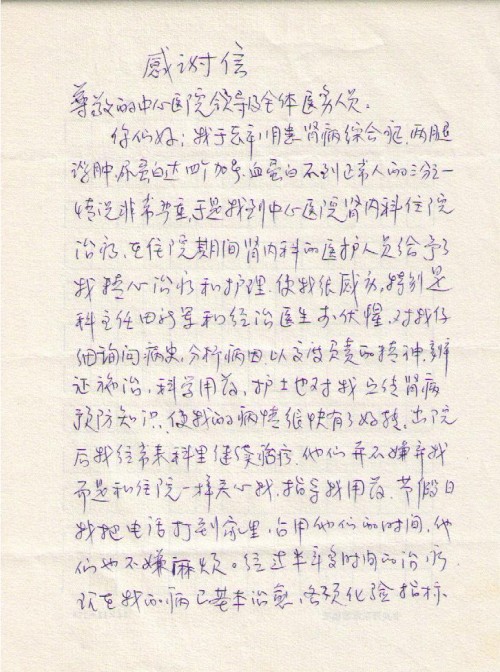 感谢信
尊敬的中心医院领导及全体医务人员:
你们好;我于去年八月患肾病综合症,两腿
浮肿,尿蛋白达四个加号,血蛋白不到正常人的三分之一
情况非常严重,于是我到中心医院肾内科住院
治疗,在住院期间肾内科的医护人员给予了
我精心治疗和护理,使我很感动,特别是
科主任田 和经治医生 伏惺,对我仔
细询问病史,分析病因以高度负责的精神,辨
证施治,科学用药,护士也对我宣传肾病
预防知识,使我的病情很快有了好转,出院
后我经常来科里继续治疗,他们并不嫌弃我
而是和住院一样关心我,指导我用药,节假日
我把电话打到家里,占用他们的时间,他
们也不嫌麻烦。经过半年多时间的治疗
现在我的病已基本治愈,各项化验指标